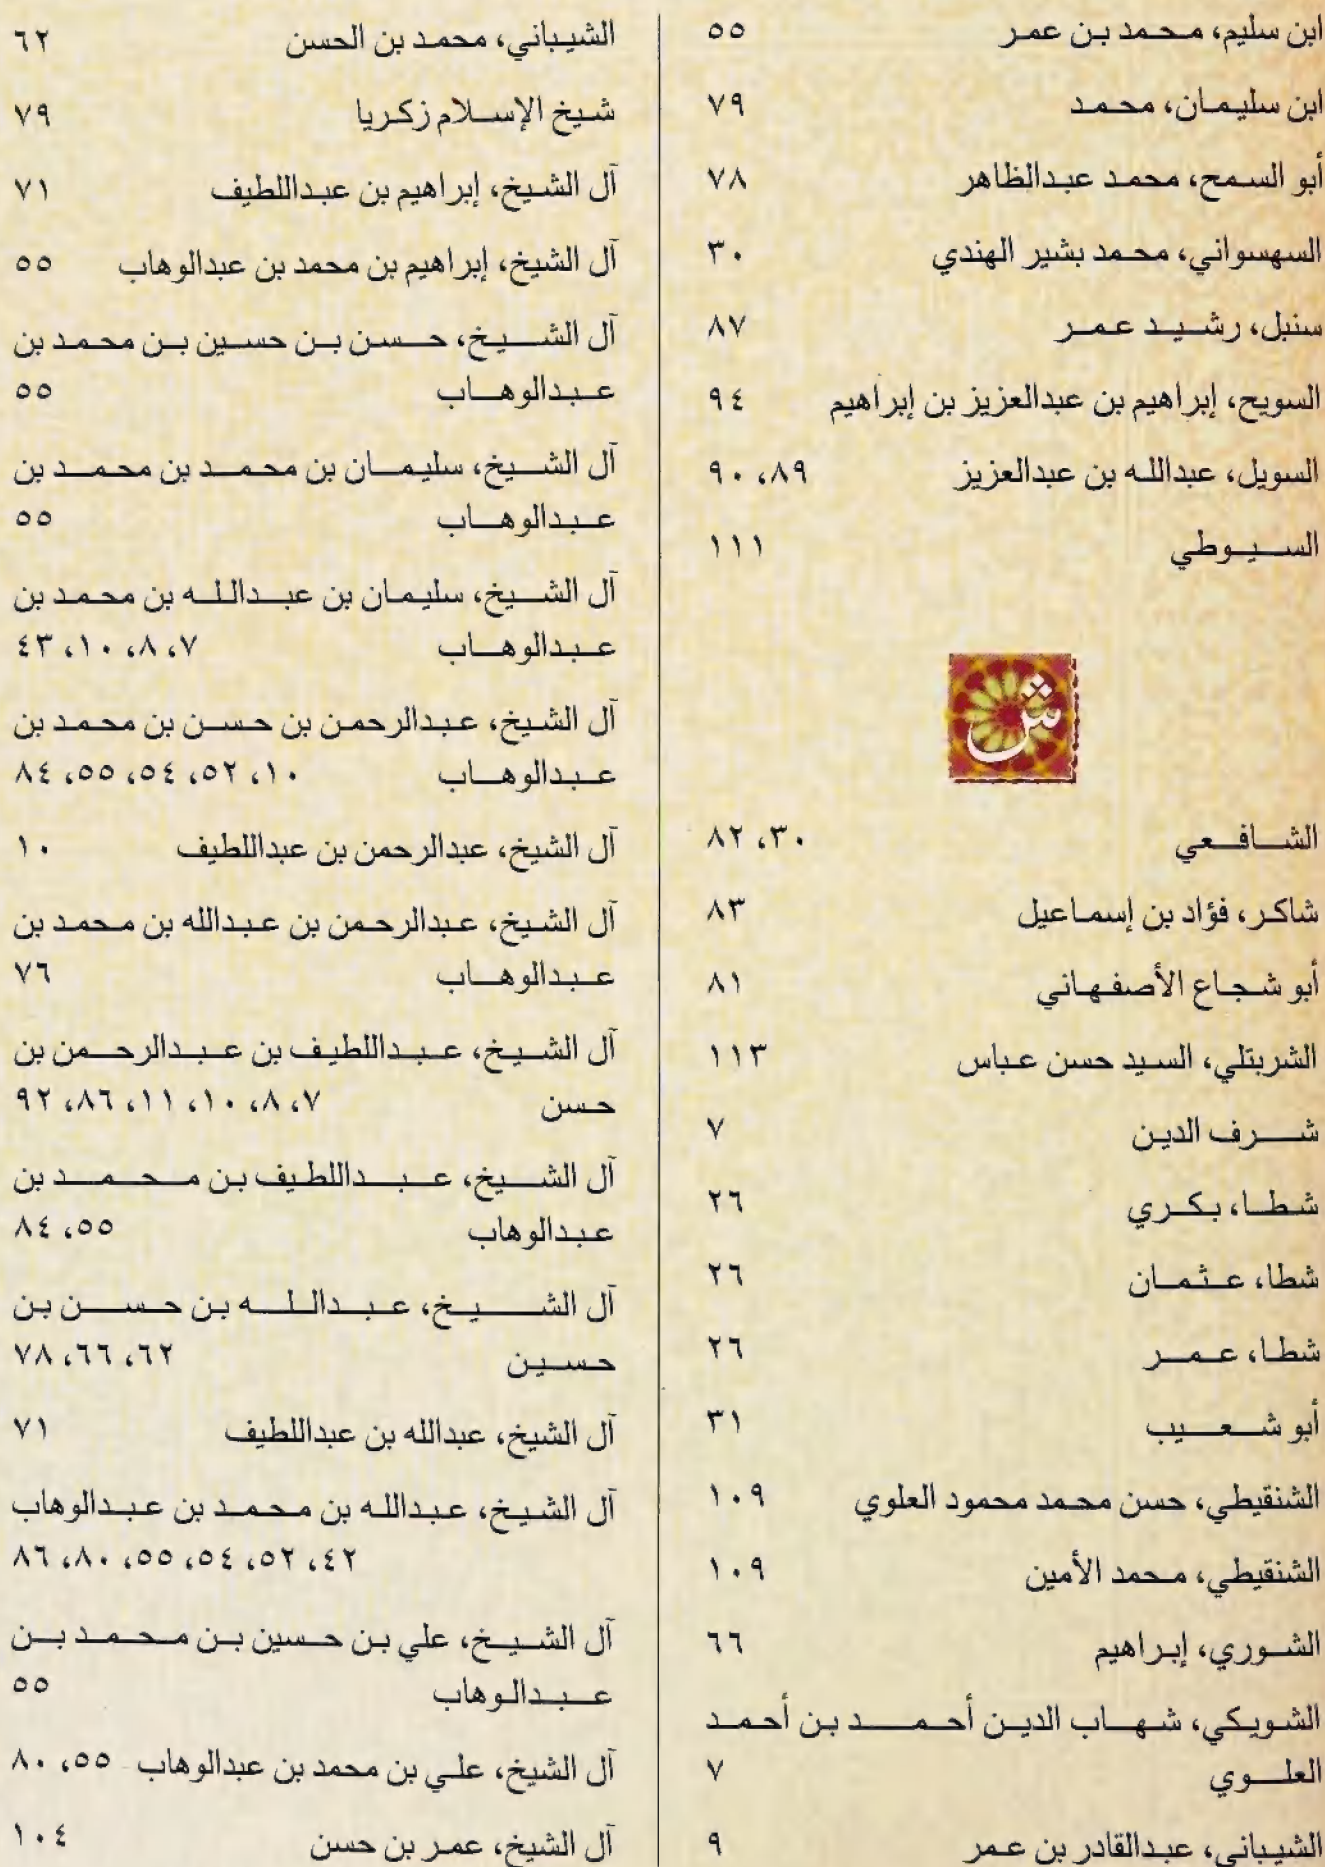 ابن سليم، محمد بن عمر ٥٥
ابن سليمان، محمد ٧٩
أبو السمح، محمد عبدالظاهر ٧٨
السهسواني، محمد بشير الهندي ٣٠
سنبل، رشيد عمر ٨٧
السويح، إبراهيم بن عبدالعزيز بن إبراهيم ٩٤
السويل، عبدالله بن عبدالعزيز ٨٩، ٩٠
السيوطي ١١١
ش
الشافعي ٣٠، ٨٢
شاكر، فؤاد بن إسماعيل ٨٣
أبو شجاع الأصفهاني ٨١
الشربتلي، السيد حسن عباس ١١٣
شرف الدين ٧
شطا، بكري ٢٦
شطا، عثمان ٢٦
شطا، عمر ٢٦
أبو شعيب ٣١
الشنقيطي، حسن محمد محمود العلوي ١٠٩
الشنقيطي، محمد الأمين ١٠٩
الشوري، إبراهيم ٦٦
الشويكي، شهاب الدين أحمد بن أحمد
العلوي ٧
الشيباني، عبدالقادر بن عمر ٩
الشيباني، محمد بن الحسن ٦٢
شيخ الإسلام زكريا ٧٩
آل الشيخ، إبراهيم بن عبداللطيف ٧١
آل الشيخ، إبراهيم بن محمد بن عبدالوهاب ٥٥
آل الشيخ، حسن بن حسين بن محمد بن
عبدالوهاب ٥٥
آل الشيخ، سليمان بن محمد بن محمد بن
عبدالوهاب ٥٥
آل الشيخ، سليمان بن عبدالله بن محمد بن
عبدالوهاب ٧، ٨، ١٠، ٤٣
آل الشيخ، عبدالرحمن بن حسن بن محمد بن
عبدالوهاب ١٠، ٥٢، ٥٤، ٥٥، ٨٤
آل الشيخ، عبدالرحمن بن عبداللطيف ١٠
آل الشيخ، عبدالرحمن بن عبدالله بن محمد بن
عبدالوهاب ٧٦
آل الشيخ، عبداللطيف بن عبدالرحمن بن
حسن ٧، ٨، ١٠، ١١، ٨٦، ٩٢
آل الشيخ، عبداللطيف بن محمد بن
عبدالوهاب ٥٥، ٨٤
آل الشيخ، عبدالله بن حسن بن
حسين ٦٢، ٦٦، ٧٨
آل الشيخ، عبدالله بن عبداللطيف ٧١
آل الشيخ، عبدالله بن محمد بن عبدالوهاب
٤٢، ٥٢، ٥٤، ٥٥، ٨٠، ٨٦
آل الشيخ، علي بن حسين بن محمد بن
عبدالوهاب ٥٥
آل الشيخ، علي بن محمد بن عبدالوهاب ٥٥، ٨٠
آل الشيخ، عمر بن حسن ١٠٤